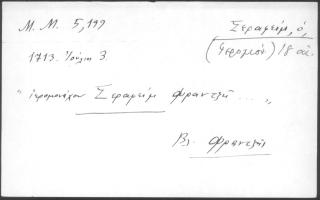 Μ. Μ. 5,199
Σεραφείμ, ὁ,
(Ἱερομόν) 18 αἰ.
1713. Ἰούλιος 3
" ἱερομονάχου Σεραφείμ φραντζῆ ... "
Βλ. Φραντζῆς